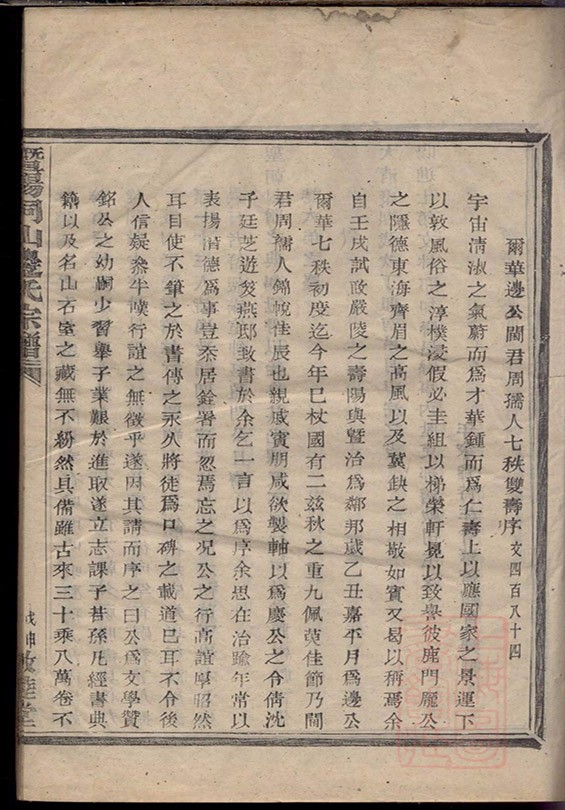 爾華邊公閫君周孺人七秩雙壽序文四百八十四
宇宙淸淑之氣蔚而爲才華鍾而爲仁壽上以應國家之景運下
以敦風俗之淳樸浸假必圭組以梯榮軒冕以致譽彼鹿門龐公
之隱德東海齊眉之高風以及冀缺之相敬如賓又曷以稱焉余
自壬戌試政嚴陵之壽陽與暨治爲鄰邦歲乙丑嘉平月爲邊公
爾華七秩初度迄今年巳杖國有二玆秋之重九佩萸佳節乃閫
君周孺人錦帨佳辰也親戚賓朋咸欲製軸以爲慶公之令倩沈
子廷芝遊笈燕邸致書於余乞一言以爲序余思在治踰年常以
表揚濳德爲事豈忝居銓署而忽焉忘之况公之行高誼厚昭然
耳目使不筆之於書傳之永久將徒爲口碑之載道巳耳不令後
人信疑叅半嘆行誼之無徵乎遂因其請而序之曰公爲文學贊
銘公之幼嗣少習舉子業艱於進取遂立志課子若孫凡經書典
籍以及名山石室之藏無不紛然具備雖古來三十乘八萬卷不
暨陽同山邊氏宗譜
戊申敘倫堂